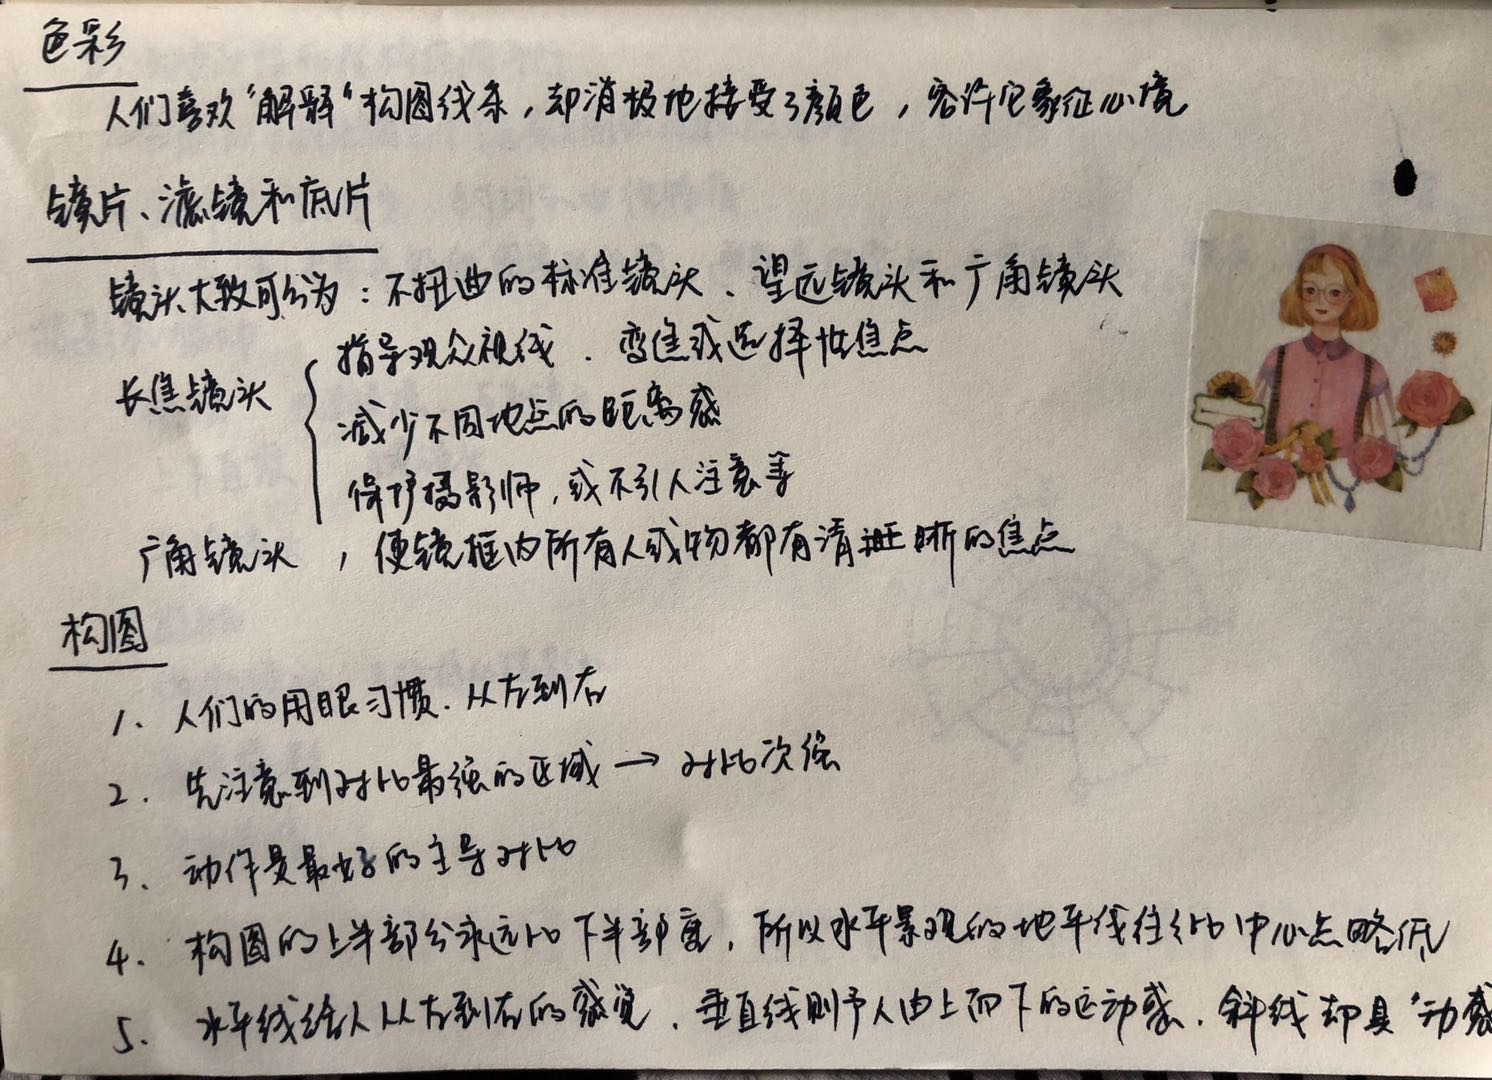 色彩
人们喜欢“解释“构图线条，却消极地接受了颜色，容许它象征心境
镜片、滤镜和底片
镜头大致可分为：不扭曲的标准镜头、望远镜头和广角镜头
长焦镜头
指导观众视线、变焦或选择性焦点
减少不同地点的距离感
保护摄影师，或不引人注意等
广角镜头，使镜框内所有人或物都有清晰的焦点
构图
1. 人们的用眼习惯、从左到右
2. 先注意到对比最强的区域→对比次强
3. 动作是最好的主导对比
4. 构图的上半部分永远比下半部重，所以水平景观的地平线往往比中心点略低
5. 水平线给人从左到右的感觉、垂直线则予人由上而下的运动感、斜线却具“动感